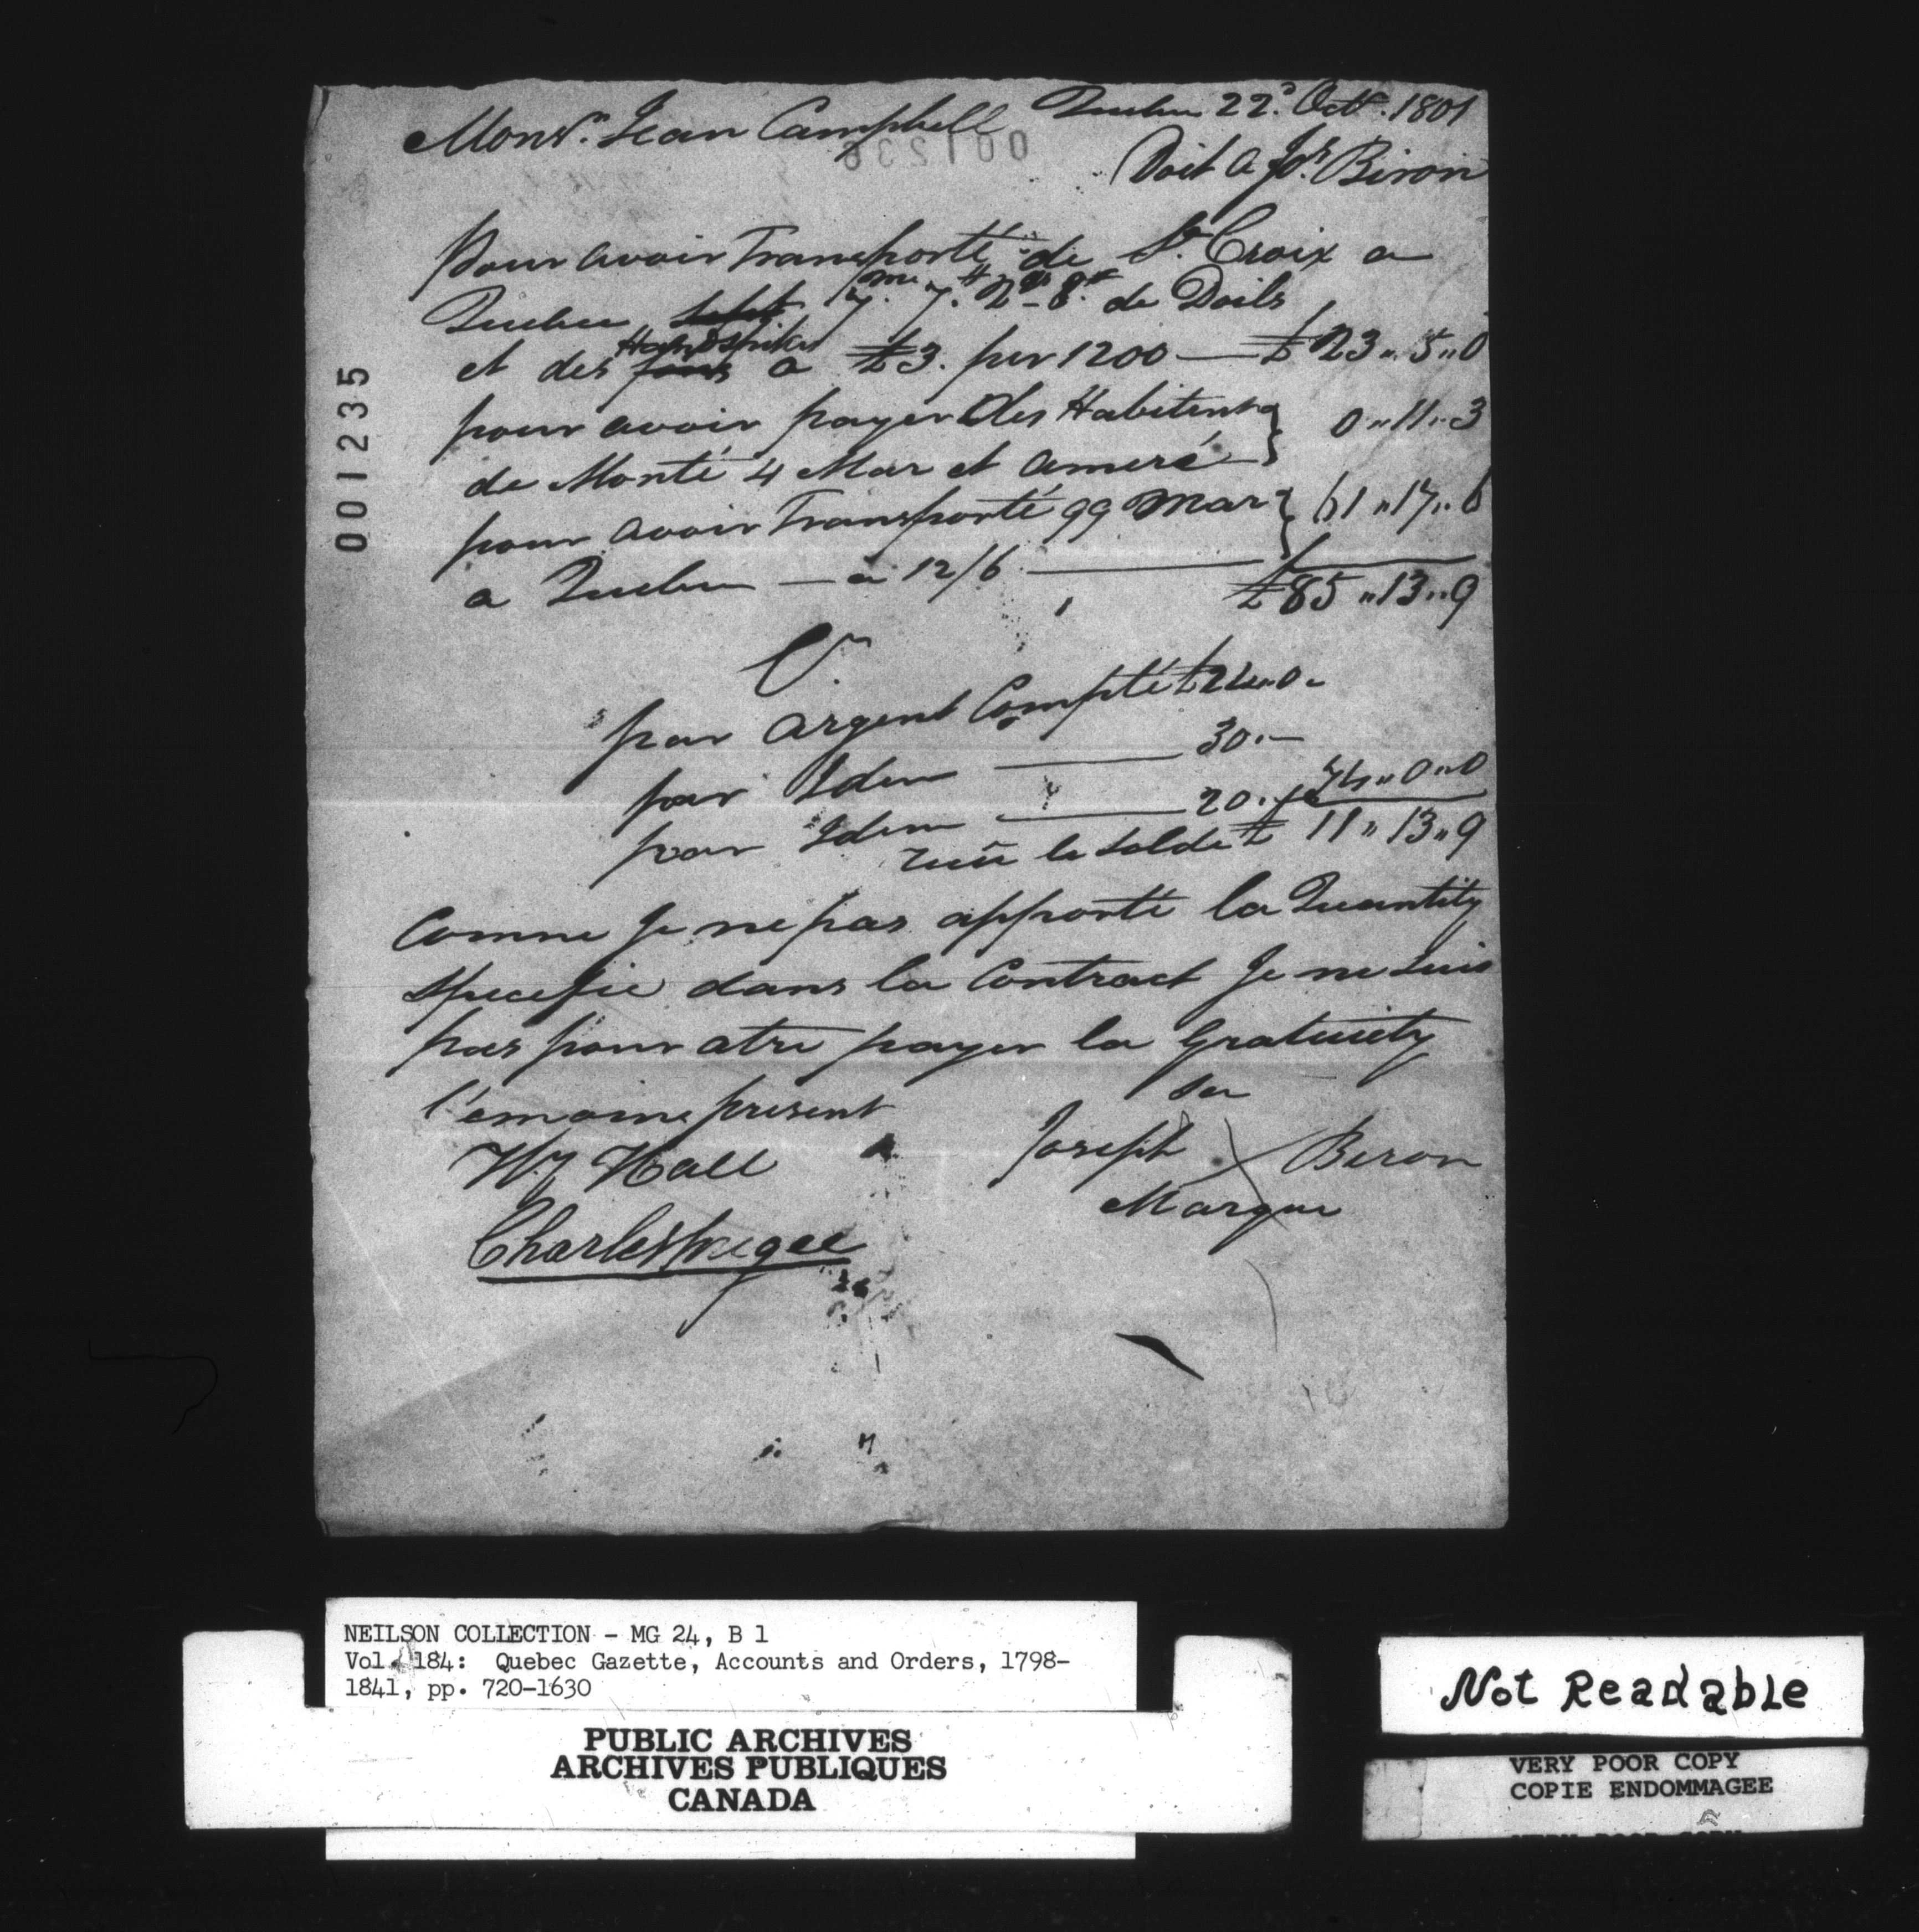 Quebec 22d. Octr. 1801
Monsr. Jean Campbell
001236
Doit a Jos. Biron
pour avoir Transporté de St. Croix a
Quebec 7.me 7.# 2qs 8# de Doils
et des Handspikes a £3. per 1200 — £23,,5,,0
pour avoir payer Des Habitents } 0,,11,,3
de Monté 4 Mar et ameré
pour avoir Transporté 99 Mar } 61,,17,,6
a Quebec — a 12/6 —
£85,,13,,9
Cr.
par argent Compté £24,,0,,
par Idem — 30.—
par Idem — 20. 74,,0,,0
recu le Solde £ 11,,13,,9
Comme Je ne pas apporté la Quantity
specifie dans la Contract Je ne suis
pas pour atre payer la Gratuiety
temoine present
Sa
Joseph X Beron
Marque
Wm Hall
Charles
001235
NEILSON COLLECTION - MG 24, B 1
Vol. 184: Quebec Gazette, Accounts and Orders, 1798-
1841, pp. 720-1630
PUBLIC ARCHIVES
ARCHIVES PUBLIQUES
CANADA
Not Readable
VERY POOR COPY
COPIE ENDOMMAGEE
VERY POOR COPY